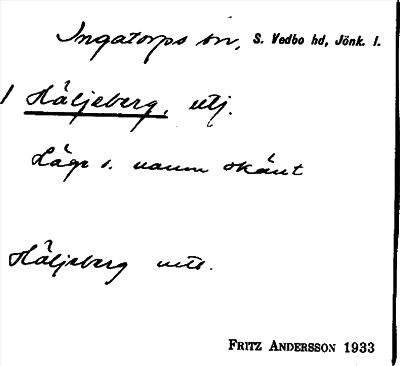 Ingatorps sn, S. Vedbo hd, Jönk. l.
1 Häljeberg, utj.
Läge o. namn okänt
Häljeberg uttl.
FRITZ ANDERSSON 1933